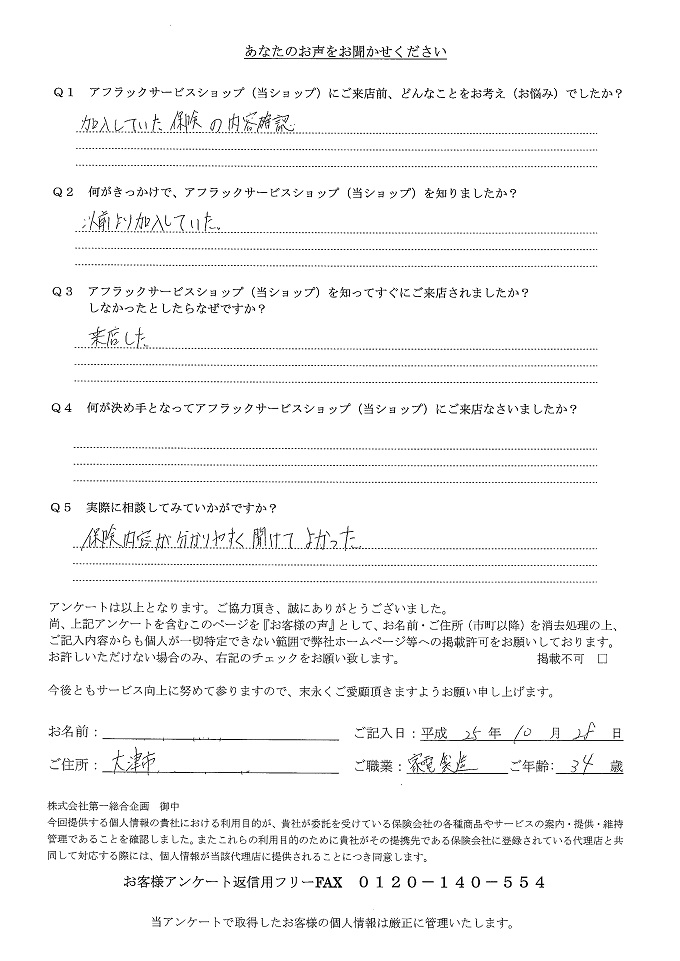 あなたのお声をお聞かせください
Q１　アフラックサービスショップ（当ショップ）にご来店前、どんなことをお考え（お悩み）でしたか？
加入していた保険の内容確認
Q２　何がきっかけで、アフラックサービスショップ（当ショップ）を知りましたか？
以前より加入していた。
Q３　アフラックサービスショップ（当ショップ）を知ってすぐにご来店されましたか？
しなかったとしたらなぜですか？
来店した
Q４　何が決め手となってアフラックサービスショップ（当ショップ）にご来店なさいましたか？
Q５　実際に相談してみていかがですか？
保険内容が分かりやすく聞けてよかった
アンケートは以上となります。ご協力頂き、誠にありがとうございました。
尚、上記アンケートを含むこのページを『お客様の声』として、お名前・ご住所（市町以降）を消去処理の上、
ご記入内容からも個人が一切特定できない範囲で弊社ホームページ等への掲載許可をお願いしております。
お許しいただけない場合のみ、右記のチェックをお願い致します。　掲載不可　□
今後ともサービス向上に努めて参りますので、末永くご愛顧頂きますようお願い申し上げます。
お名前：　ご記入日：平成 25 年 10 月 28 日
ご住所：大津市　ご職業：家電製造　ご年齢：34 歳
株式会社第一総合企画　御中
今回提供する個人情報の貴社における利用目的が、貴社が委託を受けている保険会社の各種商品やサービスの案内・提供・維持
管理であることを確認しました。またこれらの利用目的のために貴社がその提携先である保険会社に登録されている代理店と共
同して対応する際には、個人情報が当該代理店に提供されることにつき同意します。
お客様アンケート返信用フリーFAX　０１２０－１４０－５５４
当アンケートで取得したお客様の個人情報は厳正に管理いたします。